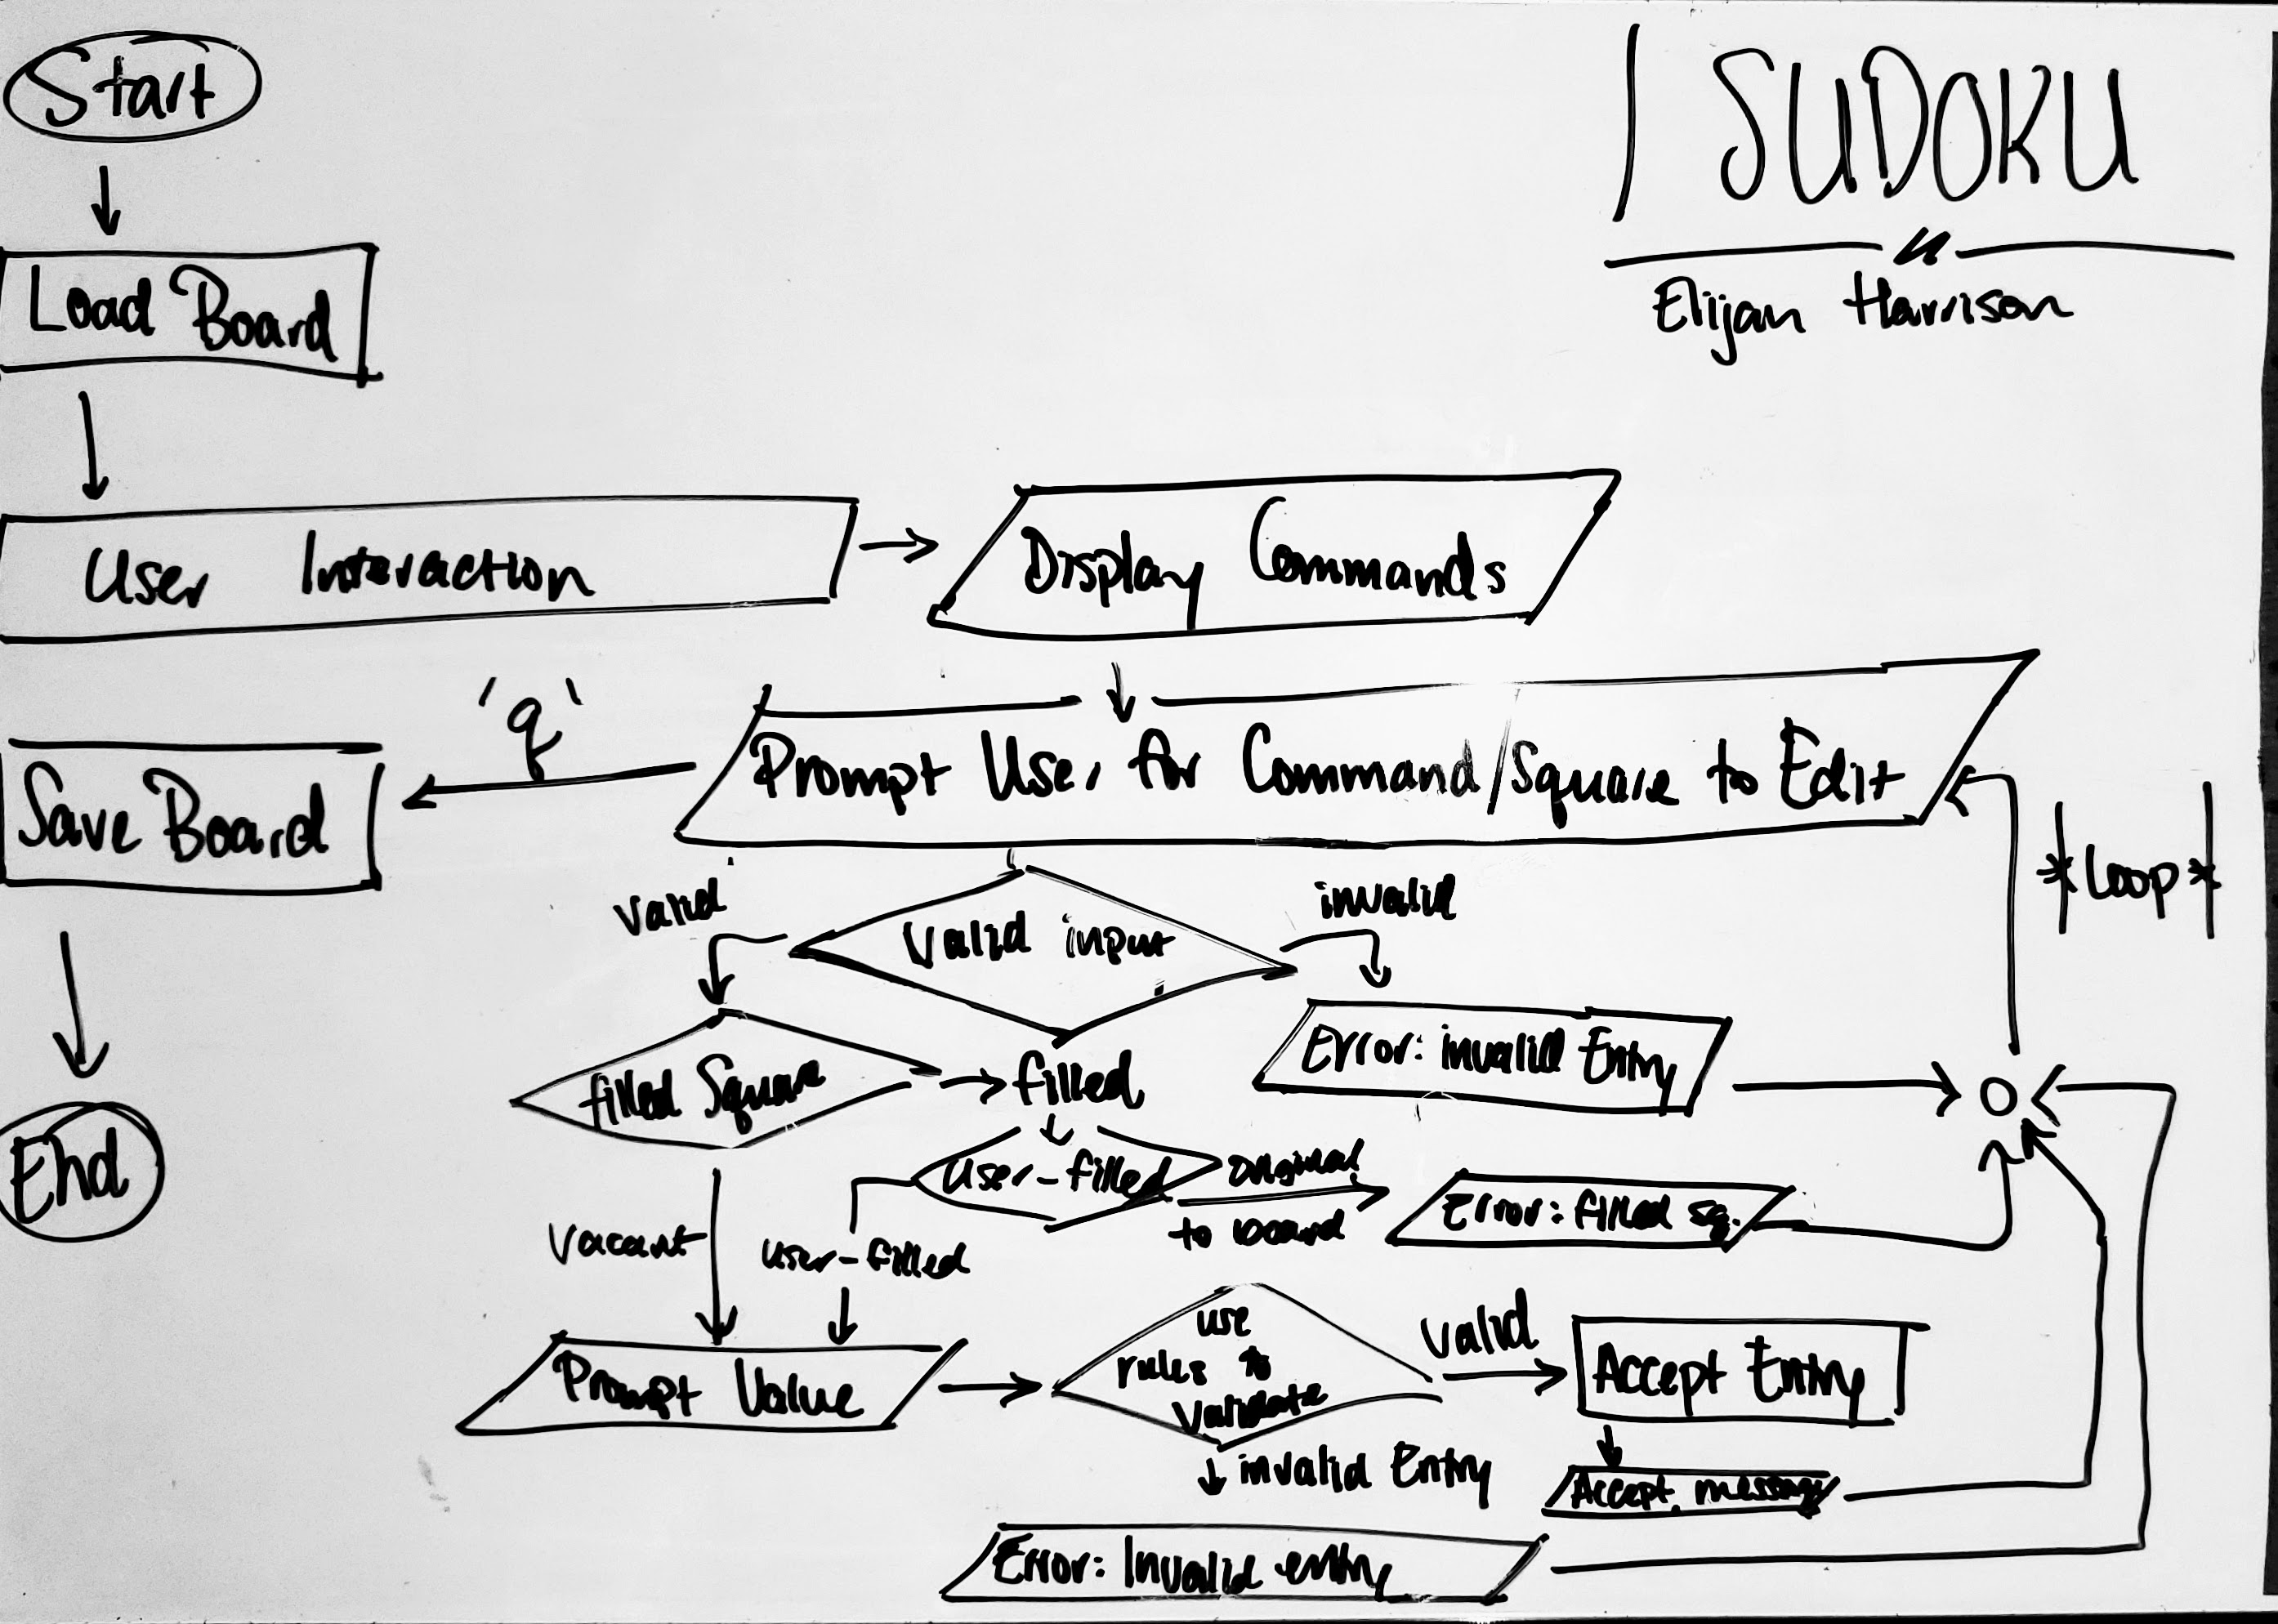 Start
SUDOKU
Elijah Harrison
Load Board
User Interaction
Display Commands
'q'
Prompt User for Command/Square to Edit
Save Board
*Loop*
valid
Valid input
invalid
filled Square
filled
Error: invalid Entry
End
User-filled
original
to board
Error: filled sq.
Vacant
user-filled
Prompt Value
use
rules to
validate
valid
Accept Entry
invalid Entry
Accept message
Error: Invalid entry